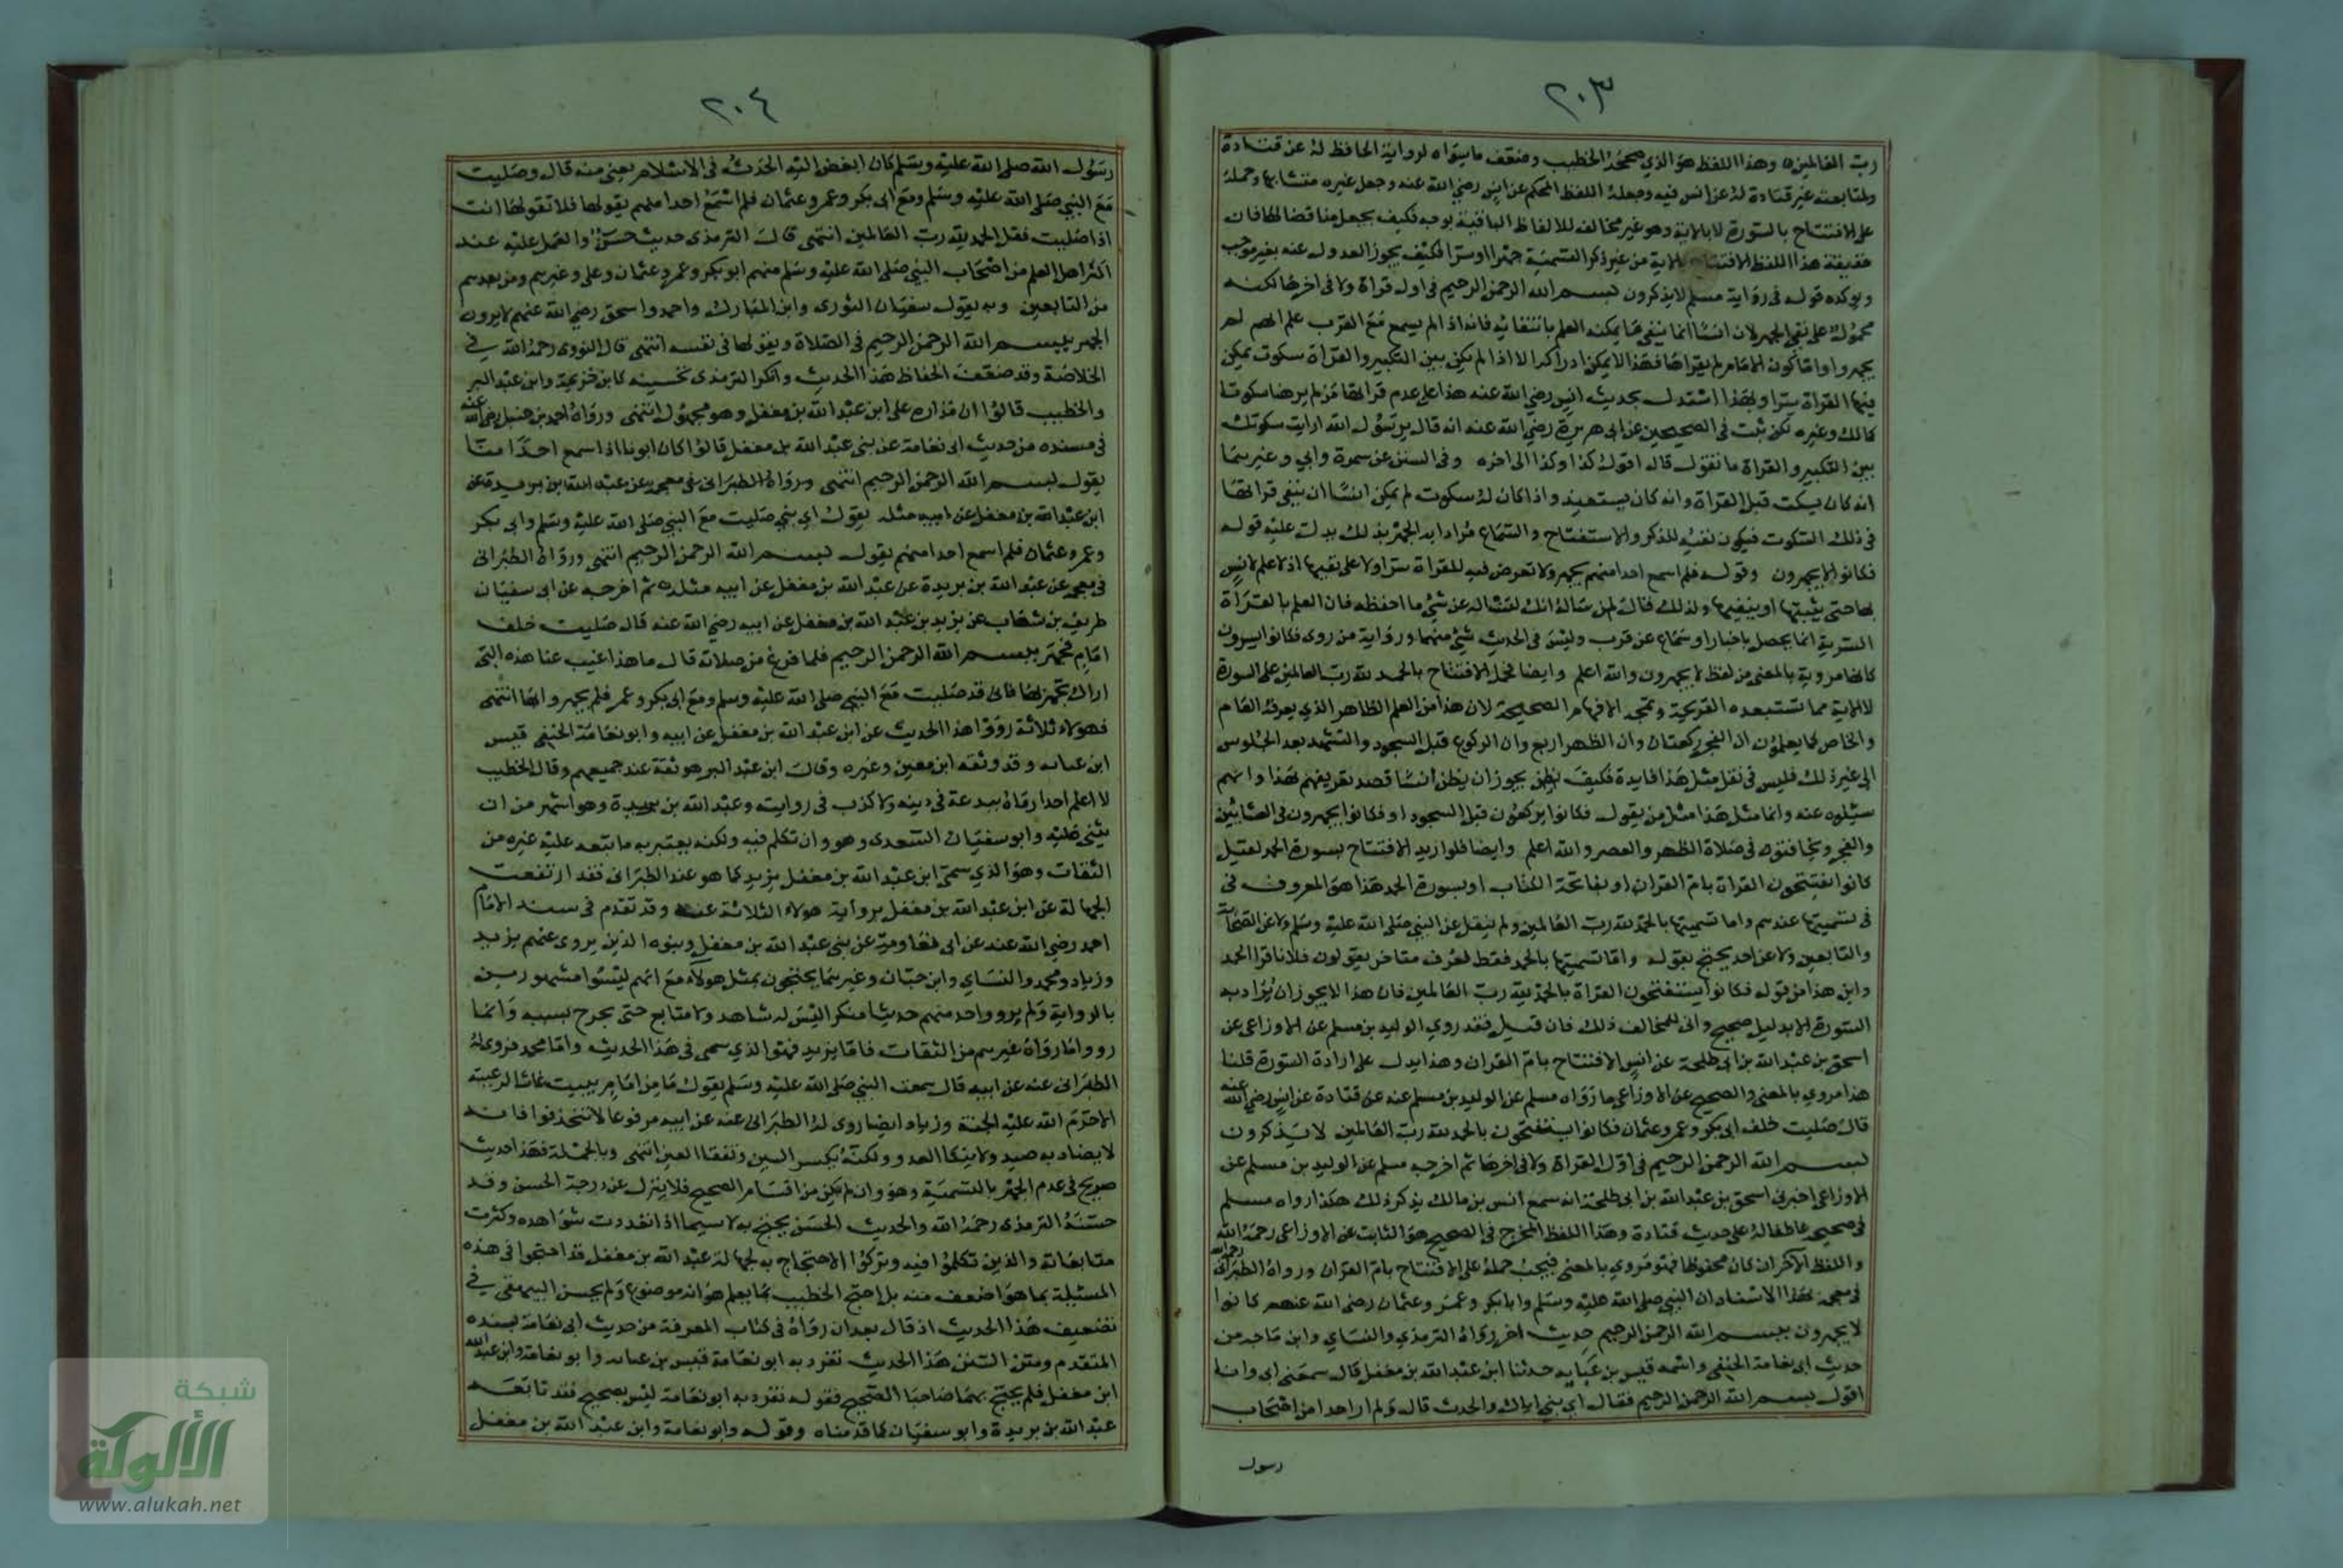 ٢٠٣
رب العالمين وهذا اللفظ هو الذي صححه الخطيب وضعف ما سواه لرواية الحافظ له عن قتادة
ولمتابعته غير قتادة له عن انس فيه وجعله اللفظ المحكم عن انس رضي الله عنه وجعل غيره متشابها وحمله
على الافتتاح بالسورة لا بالاية وهو غير مخالف للالفاظ الباقية بوجه فكيف يجعل مناقضا لها فان
حقيقة هذا اللفظ الافتتاح بالاية من غير ذكر التسمية جهرا او سرا فكيف يجوز العدول عنه بغير موجب
ويوكده قوله في رواية مسلم لا يذكرون بسم الله الرحمن الرحيم في اول قراة ولا في اخرها لكنه
محمول على نفي الجهر لان انسا انما ينفي ما يمكنه العلم بانتفائه فانه اذا لم يسمع مع القرب علم انهم لم
يجهروا واما كون الامام لم يقراها فهذا لا يمكن ادراكه الا اذا لم يكن بين التكبير والقراة سكوت يمكن
فيها القراة سرا ولهذا استدل بحديث انس رضي الله عنه هذا على عدم قراتها من لم ير هنا سكوتا
كمالك وغيره لكن ثبت في الصحيحين عن ابي هريرة رضي الله عنه انه قال يرسول الله ارايت سكوتك
بين التكبير والقراة ما تقول قال اقول كذا وكذا الى اخره وفي السنن عن سمرة وابي وغيرهما
انه كان يسكت قبل القراة وانه كان يستعيذ واذا كان له سكوت لم يمكن انسا ان ينفي قراتها
في ذلك السكوت فيكون نفيه للذكر والاستفتاح والسماع مرادا به الجهر بذلك يدل عليه قوله
فكانوا لا يجهرون وقوله فلم اسمع احدا منهم يجهر ولا تعرض فيه للقراة سرا ولا على نفيها اذ لا علم لانس
بها حتى يثبتها او ينفيها ولذلك قال لمن ساله انك لتسالني عن شئ ما احفظه فان العلم بالقراة
السرية انما يحصل باخبار او سماع عن قرب وليس في الحديث شئ منهما ورواية من روى فكانوا يسرون
كانها مروية بالمعنى من لفظ لا يجهرون والله اعلم وايضا فحمل الافتتاح بالحمد لله رب العالمين على السورة
لا الاية مما تستبعده القريحة وتمجه الافهام الصحيحة لان هذا من العلم الظاهر الذي يعرفه العام
والخاص كما يعلمون ان الفجر ركعتان وان الظهر اربع وان الركوع قبل السجود والتشهد بعد الجلوس
الى غير ذلك فليس في نقل مثل هذا فايدة فكيف يظن يجوز ان يظن انسا قصد تعريفهم بهذا وانهم
سئلوه عنه وانما مثل هذا مثل من يقول فكانوا يركعون قبل السجود او فكانوا يجهرون في العشائين
والفجر ويخافتون في صلاة الظهر والعصر والله اعلم وايضا فلو اريد الافتتاح بسورة الحمد لقيل
كانوا يفتتحون القراة بام القران او بفاتحة الكتاب او بسورة الحمد هذا هو المعروف في
في تسميتها عندهم واما تسميتها بالحمد لله رب العالمين ولم ينقل عن النبي صلى الله عليه وسلم ولا عن الصحابة
والتابعين ولا عن احد يحتج بقوله واما تسميتها بالحمد فقط فعرف متاخر يقولون فلان قرا الحمد
واين هذا من قوله فكانوا يستفتحون القراة بالحمد لله رب العالمين فان هذا لا يجوز ان يراد به
السورة الا بدليل صحيح وانى للمخالف ذلك فان قيل فقد روي الوليد بن مسلم عن الاوزاعي عن
اسحق بن عبد الله بن ابي طلحة عن انس الافتتاح بام القران وهذا يدل على ارادة السورة قلنا
هذا مروي بالمعنى والصحيح عن الاوزاعي ما رواه مسلم عن الوليد بن مسلم عنه عن قتادة عن انس رضي الله عنه
قال صليت خلف ابي بكر وعمر وعثمان فكانوا يستفتحون بالحمد لله رب العالمين لا يذكرون
بسم الله الرحمن الرحيم في اول القراة ولا في اخرها ثم اخرجه مسلم عن الوليد بن مسلم عن
الاوزاعي اخبرني اسحق بن عبد الله بن ابي طلحة انه سمع انس بن مالك يذكر ذلك هكذا رواه مسلم
في صحيحه عاطفا له على حديث قتادة وهذا اللفظ المخرج في الصحيح هو الثابت عن الاوزاعي رحمه الله
واللفظ الآخر ان كان محفوظا فهو مروي بالمعنى فيجب حمله على الافتتاح بام القران ورواه الطبراني رحمه الله
في معجمه بهذا الاسناد ان النبي صلى الله عليه وسلم وابا بكر وعمر وعثمان رضي الله عنهم كانوا
لا يجهرون ببسم الله الرحمن الرحيم حديث اخر رواه الترمذي والنسائي وابن ماجه من
حديث ابي نعامة الحنفي واسمه قيس بن عباية حدثنا ابن عبد الله بن مغفل قال سمعني ابي وانا
اقول بسم الله الرحمن الرحيم فقال اي بني اياك والحدث قال ولم ار احدا من اصحاب
رسول
٢٠٤
رسول الله صلى الله عليه وسلم كان ابغض اليه الحدث في الاسلام يعني منه قال وصليت
مع النبي صلى الله عليه وسلم ومع ابي بكر وعمر وعثمان فلم اسمع احدا منهم يقولها فلا تقولها انت
اذا صليت فقل الحمد لله رب العالمين انتهى قال الترمذي حديث حسن والعمل عليه عند
اكثر اهل العلم من اصحاب النبي صلى الله عليه وسلم منهم ابو بكر وعمر وعثمان وعلي وغيرهم ومن بعدهم
من التابعين وبه يقول سفيان الثوري وابن المبارك واحمد واسحق رضي الله عنهم لا يرون
الجهر ببسم الله الرحمن الرحيم في الصلاة ويقولها في نفسه انتهى قال النووي رحمه الله في
الخلاصة وقد ضعفت الحفاظ هذا الحديث وانكروا لترمذي تحسينه كابن خزيمة وابن عبد البر
والخطيب قالوا ان مداره على ابن عبد الله بن مغفل وهو مجهول انتهى ورواه احمد بن حنبل رضي الله عنه
في مسنده من حديث ابي نعامة عن بني عبد الله بن مغفل قالوا كان ابونا اذا سمع احدا منا
يقول بسم الله الرحمن الرحيم انتهى ورواه الطبراني في معجمه عن عبد الله بن بريدة عن
ابن عبد الله بن مغفل عن ابيه مثله يقول اي بني صليت مع النبي صلى الله عليه وسلم وابي بكر
وعمر وعثمان فلم اسمع احدا منهم يقول بسم الله الرحمن الرحيم انتهى ورواه الطبراني
في معجمه عن عبد الله بن بريدة عن عبد الله بن مغفل عن ابيه مثله ثم اخرجه عن ابي سفيان
طريف بن شهاب عن يزيد بن عبد الله بن مغفل عن ابيه رضي الله عنه قال صليت خلف
امام فجهر ببسم الله الرحمن الرحيم فلما فرغ من صلاته قال ما هذا غيب عنا هذه التي
اراك تجهر بها فاني قد صليت مع النبي صلى الله عليه وسلم ومع ابي بكر وعمر فلم يجهروا بها انتهى
فهولاء ثلاثة رووا هذا الحديث عن ابن عبد الله بن مغفل عن ابيه وابو نعامة الحنفي قيس
ابن عبايه وقد وثقه ابن معين وغيره وقال ابن عبد البر هو ثقة عند جميعهم وقال الخطيب
لا اعلم احدا رماه ببدعة في دينه ولا كذب في روايته وعبد الله بن بريدة وهو اشهر من ان
يثنى عليه وابو سفيان السعدي وهو وان تكلم فيه ولكنه يعتبر به ما تابعه عليه غيره من
الثقات وهو الذي سمى ابن عبد الله بن مغفل يزيد كما هو عند الطبراني فقد ارتفعت
الجهالة عن ابن عبد الله بن مغفل برواية هولاء الثلاثة عنه وقد تقدم في سند الامام
احمد رضي الله عنه عن ابي نعامة عن بني عبد الله بن مغفل وبنوه الذين يروى عنهم يزيد
وزياد ومحمد والنساي وابن حبان وغيرهما يحتجون بمثل هولاء مع انهم ليسوا مشهورين
بالرواية ولم يرو واحد منهم حديثا منكرا ليس له شاهد ولا متابع حتى يجرح بسببه وانما
رووا ما رواه غيرهم من الثقات فاما يزيد فهو الذي سمى في هذا الحديث واما محمد فروى له
الطبراني عنه عن ابيه قال سمعت النبي صلى الله عليه وسلم يقول ما من امام يبيت غاشا لرعيته
الا حرم الله عليه الجنة وزياد ايضا روى له الطبراني عنه عن ابيه مرفوعا لا تتخذفوا فانه
لا يصاد به صيد ولا ينكا العدو ولكنه يكسر السن وتفقا العين انتهى وبالجملة فهذا حديث
صريح في عدم الجهر بالتسمية وهو وان لم يكن من اقسام الصحيح فلا ينزل عن درجة الحسن وقد
حسنه الترمذي رحمه الله والحديث الحسن يحتج به لا سيما اذا تعددت شواهده وكثرت
متابعاته والذين تكلموا فيه وتركوا الاحتجاج به لجهالة عبد الله بن مغفل قد احتجوا في هذه
المسئلة بما هو اضعف منه بل احتج الخطيب بما يعلم هو انه موضوع ولم يحسن البيهقي في
تضعيف هذا الحديث اذ قال بعد ان رواه في كتاب المعرفة من حديث ابي نعامة بسنده
المتقدم ومتن السنن هذا الحديث تفرد به ابو نعامة قيس بن عبايه وابو نعامة وابن عبد الله
ابن مغفل فلم يحتج بهما صاحبا الصحيح فقوله تفرد به ابو نعامة ليس بصحيح فقد تابعه
عبد الله بن بريدة وابو سفيان كما قدمناه وقوله وابو نعامة وابن عبد الله بن مغفل
شبكة
الألوكة
www.alukah.net